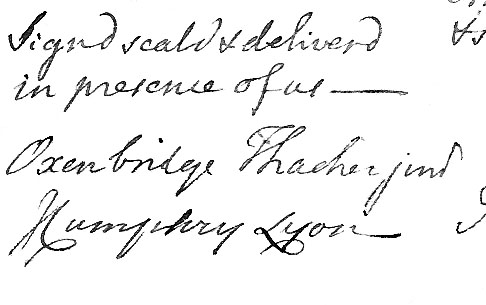 Signd seald & deliverd
in presence of us —
Oxenbridge Thacher jund
Humphry Lyon